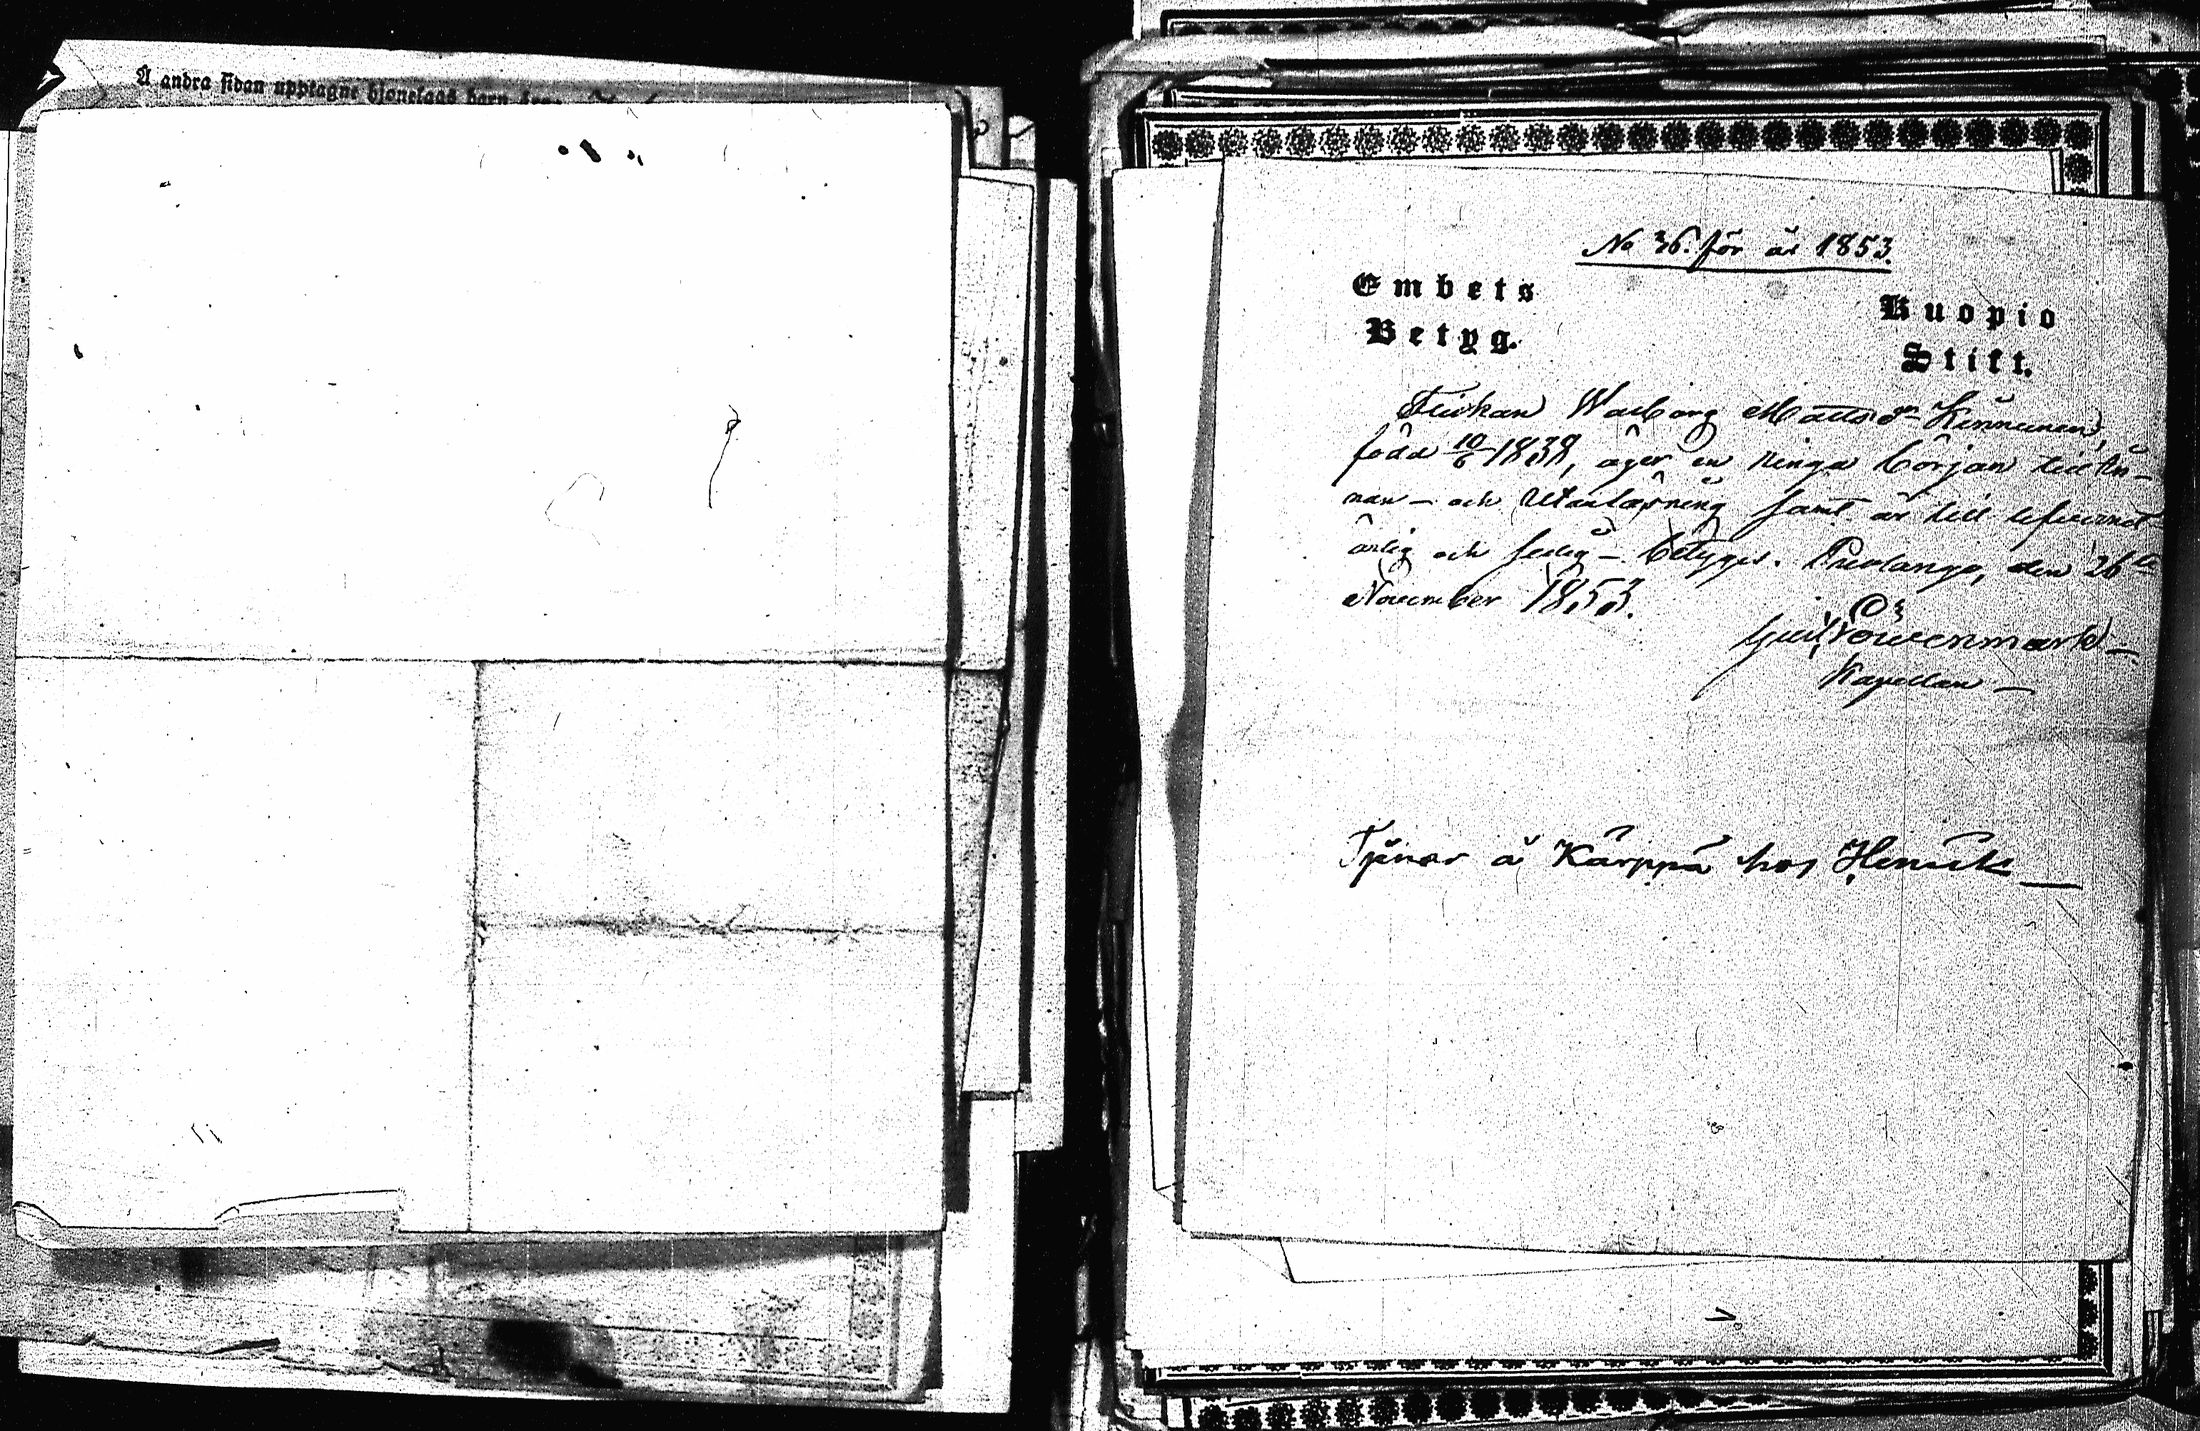 Å andra sidan upptagne hjonelags barn äro
No 36. för år 1853.
Embets
Betyg.
Kuopio
Stift.
Flickan Walborg Matts dr Kinnunen,
född 10/6 1838, äger en ringa början till In-
nan- och Utanläsning samt är till lefvernet
ärlig och sedig - betygges. Puolango, den 26te
November 1853.
Löwenmark
Kapellan
Tjenar å Kärppä hos Henrik